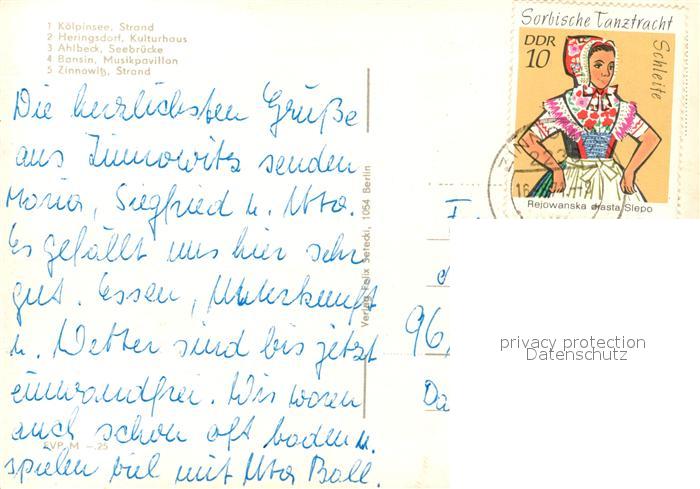 1 Kölpinsee, Strand
2 Heringsdorf, Kulturhaus
3 Ahlbeck, Seebrücke
4 Bansin, Musikpavillon
5 Zinnowitz, Strand
Die herzlichsten Grüße
aus Zinnowitz senden
Maria, Siegfried u. Uta.
Es gefällt uns hier sehr
gut. Essen, Unterkunft
u. Wetter sind bis jetzt
einwandfrei. Wir waren
auch schon oft baden u.
spielen viel mit Uta Ball.
EVP M -.25
Verlag Felix Setecki, 1054 Berlin
Sorbische Tanztracht
DDR
10
Schleife
Rejowanska drasta Slepo
96
Da
privacy protection
Datenschutz